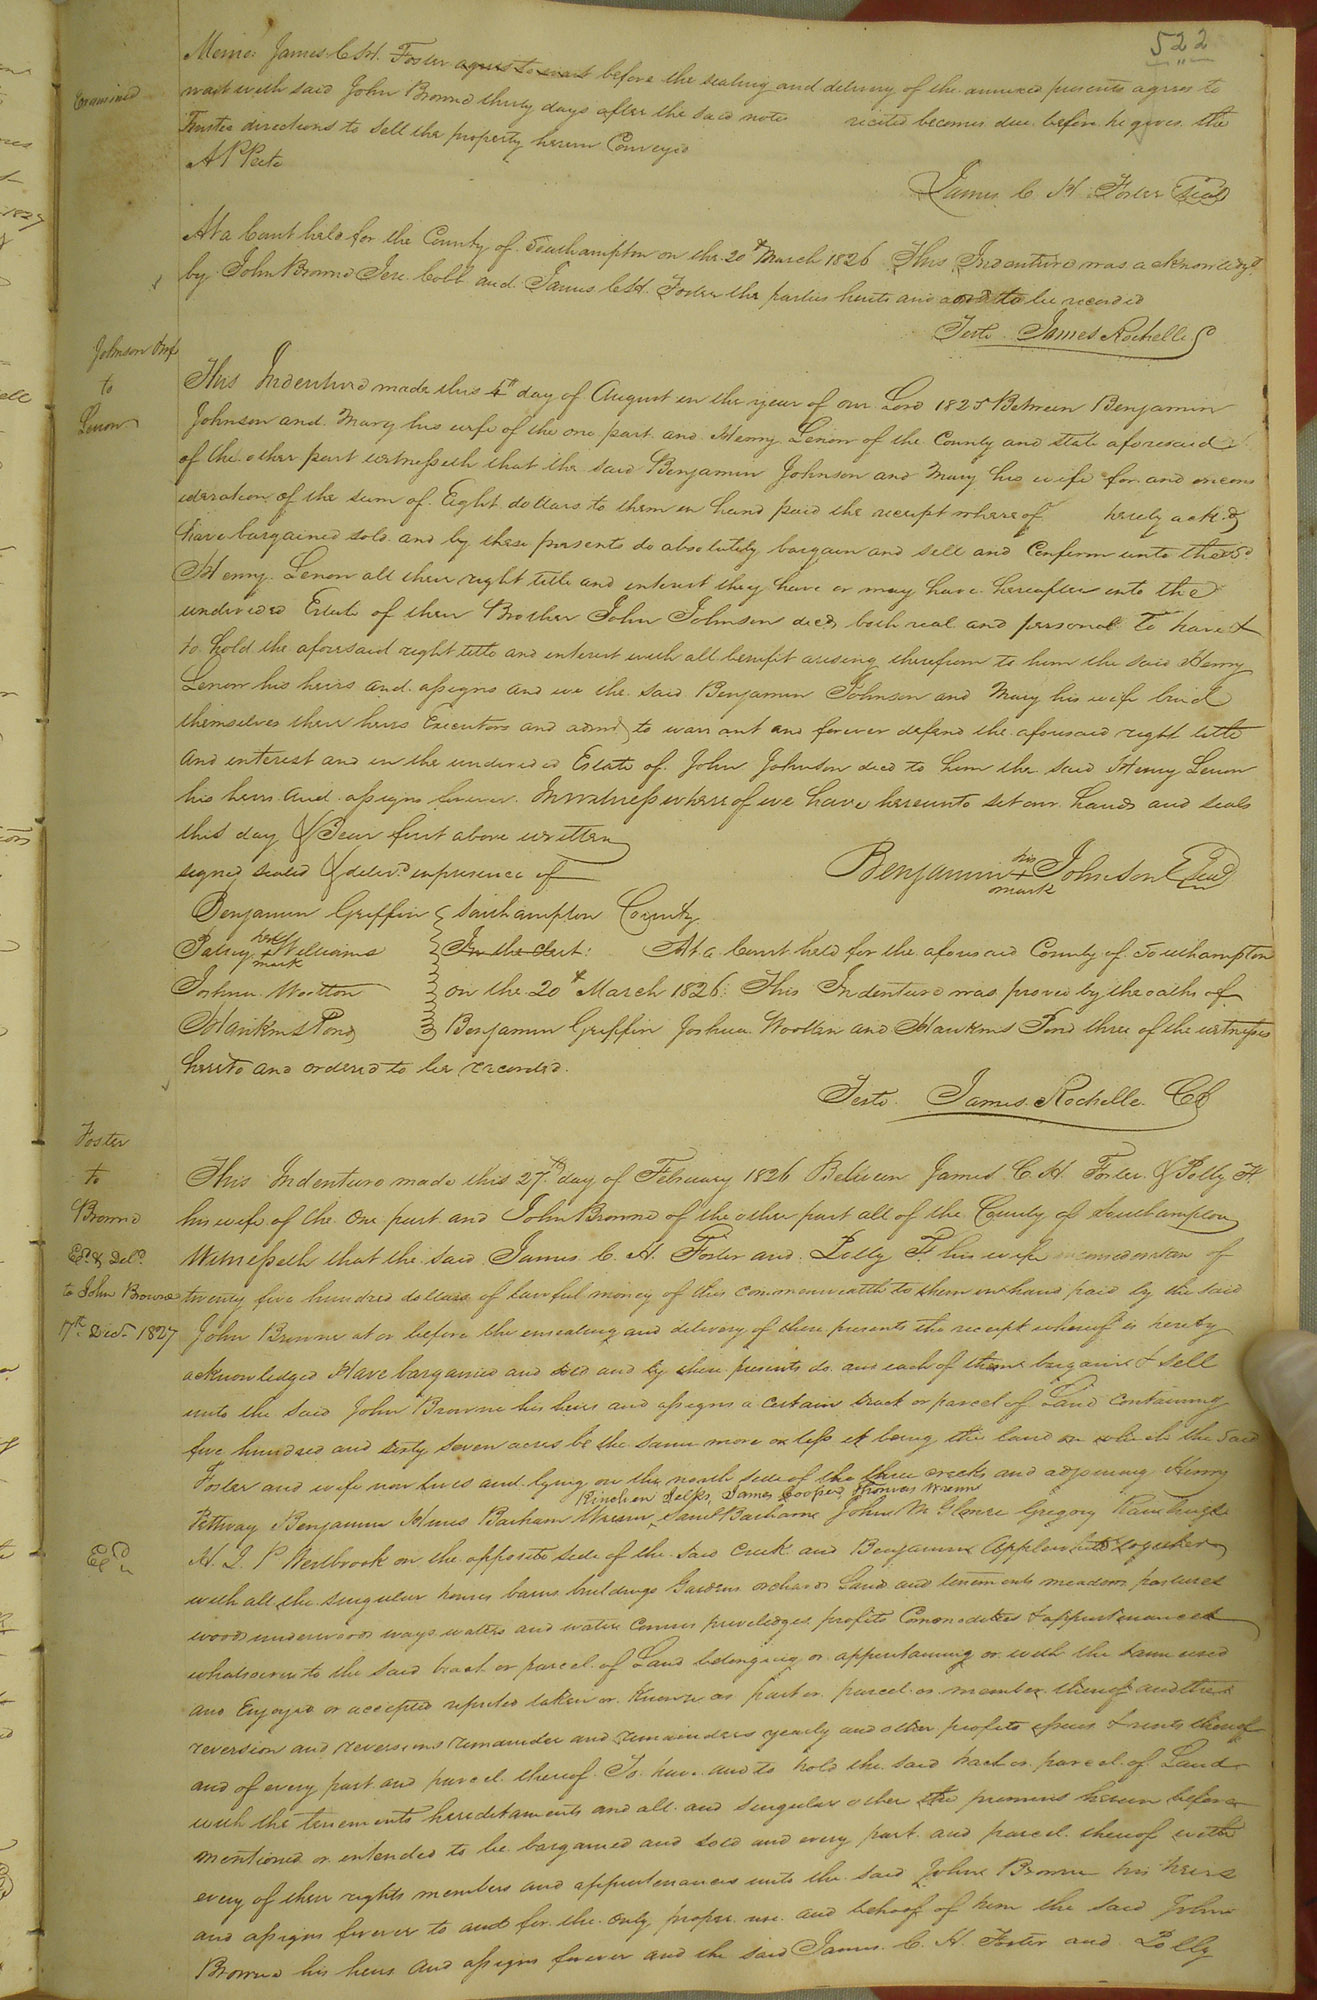 522
Examined
Memo: James C. H. Foster agrees to wait before the sealing and delivery of the annexed presents agrees to
wait with said John Browne thirty days after the said note recited becomes due before he gives the
Trustee directions to sell the property herein Conveyed
A P Peete
James C. H. Foster Seal
At a Court held for the County of Southampton on the 20th March 1826 This Indenture was acknowledged
by John Browne Jere Cobb and James C. H. Foster the parties hereto and ord to be recorded
Teste James Rochelle C
Johnson & wf
to
Lenow
This Indenture made this 4th day of August in the year of our Lord 1825 Between Benjamin
Johnson and Mary his wife of the one part and Henry Lenow of the County and state aforesaid
of the other part witnesseth that the said Benjamin Johnson and Mary his wife for and in cons
ideration of the sum of Eight dollars to them in hand paid the receipt whereof hereby ack.d
have bargained sold and by these presents do absolutely bargain and sell and Confirm unto the sd
Henry Lenow all their right title and interest they have or may have hereafter into the
undivided Estate of their Brother John Johnson decd both real and personal To have &
to hold the aforesaid right title and interest with all benefit arising therefrom to him the said Henry
Lenow his heirs and assigns and we the said Benjamin Johnson and Mary his wife bind
themselves their heirs Executors and admrs to warrant and forever defend the aforesaid right title
and interest and in the undivided Estate of John Johnson decd to him the said Henry Lenow
his heirs and assigns forever. In witness whereof we have hereunto set our hands and seals
this day & year first above written
signed sealed & delivd in presence of
Benjamin his + mark Johnson Seal
Benjamin Griffin
Patsey her + mark Williams
Joshua Wootton
Hawkins Pond
Southampton County
In the clert: At a Court held for the aforesaid County of Southampton
on the 20th March 1826: This Indenture was proved by the oaths of
Benjamin Griffin Joshua Wootten and Hawkins Pond three of the witnesses
hereto and ordered to be recorded.
Teste. James Rochelle CC
Foster
to
Browne
Ed & Deld
to John Browne
17th Decr 1827
Exd
This Indenture made this 27th day of February 1826 Between James C. H. Foster & Polly F.
his wife of the One part and John Browne of the other part all of the County of Southampton
Witnesseth that the said James C. H. Foster and Polly F. his wife in consideration of
twenty five hundred dollars of lawful money of this commonwealth to them in hand paid by the said
John Browne at or before the ensealing and delivery of these presents the receipt whereof is hereby
acknowledged Have bargained and sold and by these presents do and each of them bargain & sell
unto the said John Browne his heirs and assigns a certain tract or parcel of Land containing
five hundred and sixty seven acres be the same more or less it being the land on which the said
Foster and wife now lives and lying on the north side of the three creeks and adjoining Henry
Rinchen Delks, James Cooper, Thomas Wrenn
Pettway Benjamin Hines Barham Wrenn, Saml Barham John Mc Glenre Gregory Rawlings
H. J. P Westbrook on the opposite side of the said creek and Benjamin Applewhite together
with all the singular houses barns buildings Gardens orchards Land and tenements meadows pastures
woods underwoods ways waters and water Courses priviledges profits Commodities & appurtenances
whatsoever to the said tract or parcel of Land belonging or appertaining or with the same used
and Enjoyed or accepted reputed taken or known as part or parcel or member thereof and the
reversion and reversions remainder and remainders yearly and other profits issues & rents thereof
and of every part and parcel thereof. To have and to hold the said tract or parcel of Land
with the tenements hereditaments and all and singular other the premises herein before
mentioned or intended to be bargained and sold and every part and parcel thereof with
every of their rights members and appurtenances unto the said John Browne his heirs
and assigns forever to and for the only proper use and behoof of him the said John
Browne his heirs and assigns forever and the said James C. H. Foster and Polly